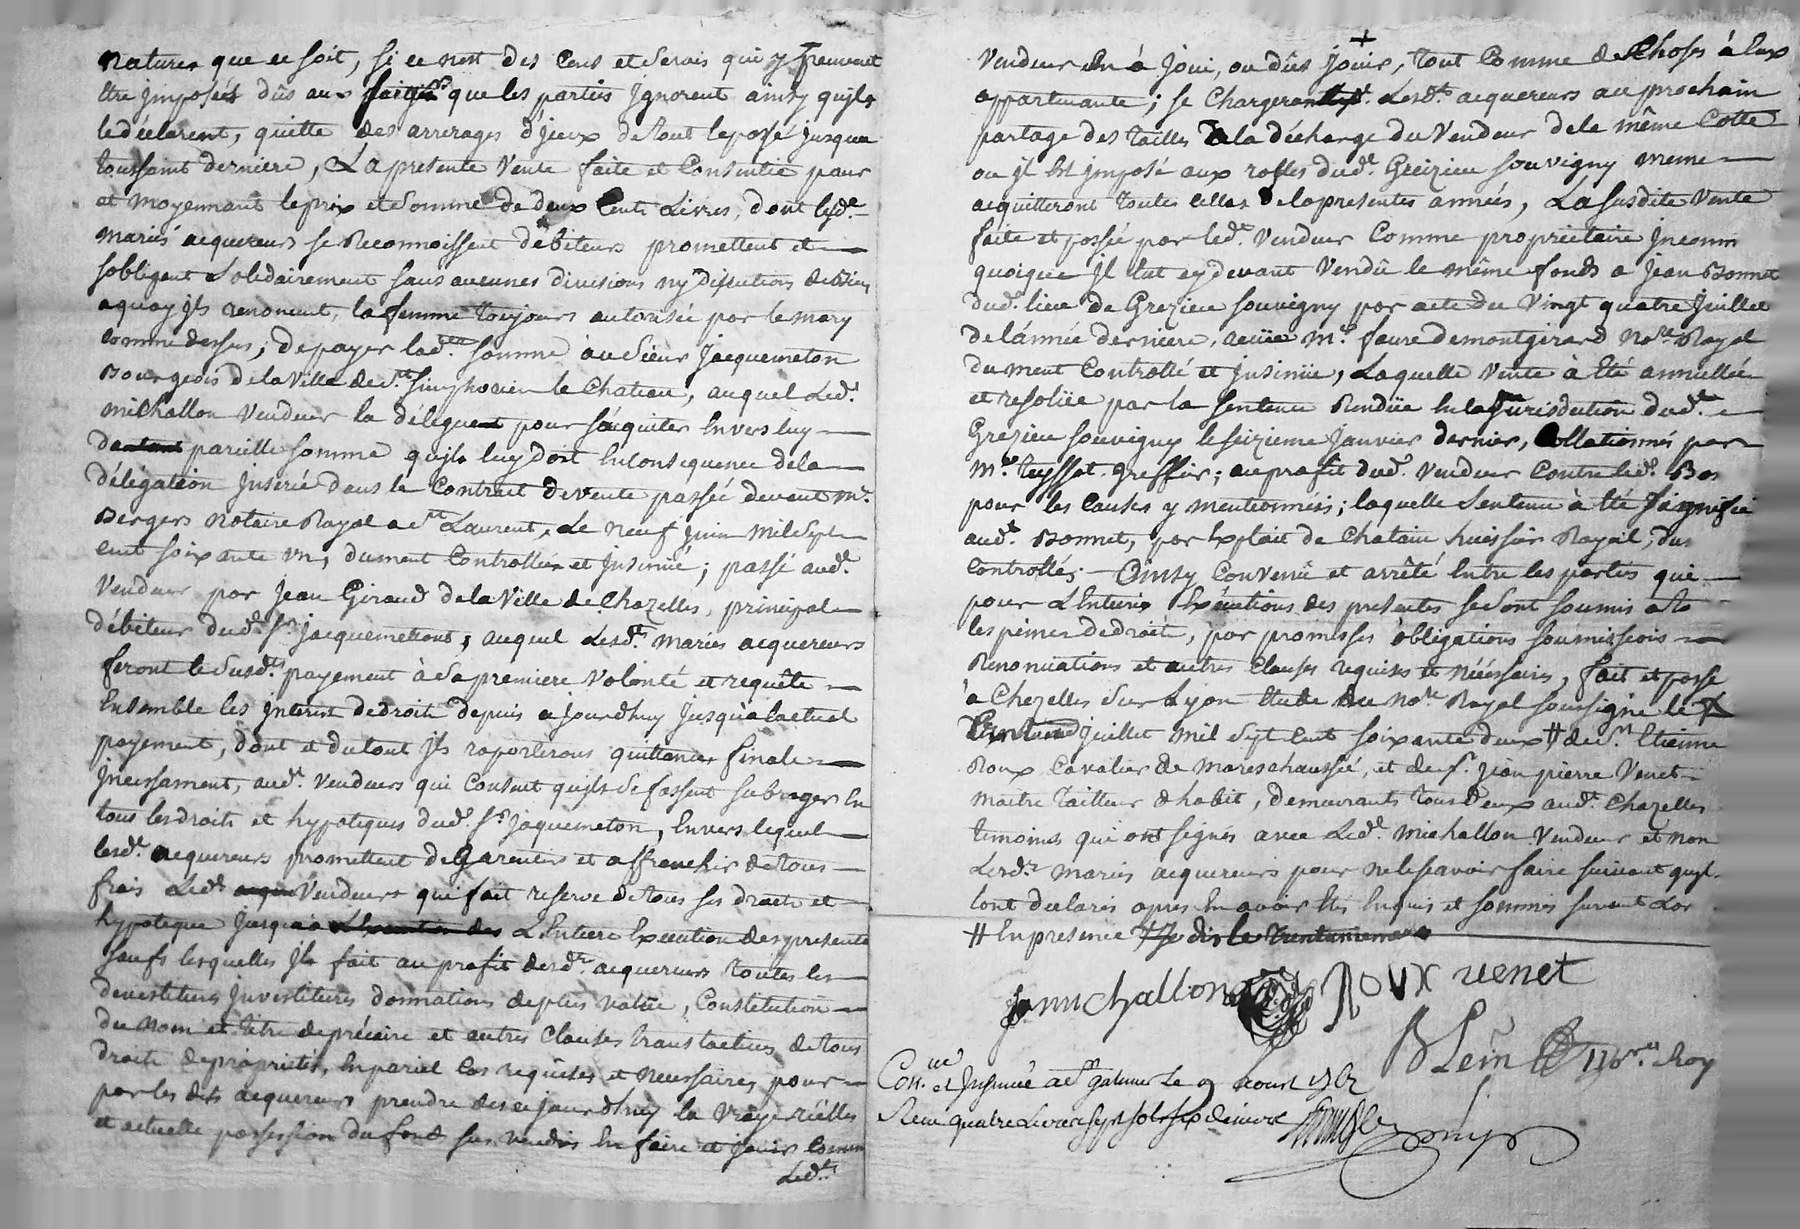 nature que ce soit, si ce nest des Cens et servis qui y peuvent
être imposés dûs aux seigrs que les parties ignorent ainsy quils
le déclarent, quitte des arrerages d'iceux de tout le passé jusqua
toussaint derniere, La presente Vente faite et Consentie pour
et moyennant le prix et somme de deux Cents Livres, dont lesd.
mariés acquereurs se Reconnoissent débiteurs promettent et
sobligent solidairement sans aucunes divisions ny discutions de Biens
aquoy ils renoncent, la femme toujours autorisée par le mary
comme dessus; de payer lad.te somme au sieur Jacquemeton
Bourgeois de la Ville de St Simphorien le Chateau, auquel Led.
michallon Vendeur la délégue pour s'aquiter Envers luy
de pareille somme quil luy doit En consequence dela
délégation inserée dans le Contrat de vente passée devant Me.
Bergers notaire Royal a St Laurent, Le neuf juin mil sept
cent soixante un, dument Controllée et insinué; passé aud.
Vendeur par Jean Giraud dela Ville de Chazelles, principal
débiteur dud. Sr. jacquemetont, auquel Lesd. mariés acquereurs
feront le susd. payement à sa premiere Volonté et requête
Ensemble les interest de droit depuis ajourdhuy jusqu'a lactuel
payement, dont et du tout ils raporterons quittance finale
incessament, aud. Vendeurs qui Consent quils se fassent subroger En
tous les droits et hypoteques dud. Sr. jaquemeton, Envers lequel
lesd. acquereurs promettent de Garentir et affranchir de tous
frais Led. Vendeurs qui fait reserve de tous ses droits et
hypoteque jusqua L'Entiere Execution des presente
saufs lesquelles il fait au profit desd. acquereurs toutes les
devestitures investitures donnations de plus value, Constitution
du nom et titre de précaire et autres Clauses translatives de tous
droits de propriétés, En pareil Cas requises et necessaires, pour
par les dits acquereurs prendre des ce jourdhuy la Vraye réelles
et actuelle possession du fond sus vendus En faire et jouir Comme
Led.
Vendeur En à joui, ou dûs jouir, tout Comme de Choses à Eux
appartenante; se Chargeront Lesd. acquereurs au prochain
partage des tailles a la décharge du Vendeur de la même Cotte
ou il Est imposé aux rolles dud. Grezieu souvigny meme
acquitteront toutes celles de la presentes années, La susdite Vente
faite et passée par led. Vendeur Comme propriétaire
quoique il Eut cy devant Vendû le même fonds a Jean Bonnet
dud. lieu de Grezieu souvigny par acte du Vingt quatre Juillet
de l'année derniere, recüe Me. faure demontgirard Nore. Royal
dument Controllé et insinüe, Laquelle Vente à Eté annullée
et resoliée par la sentence Rendüe En la jurisdiction dud.
Grezieu souvigny le seizieme Janvier dernier, Collationnés par
Me. teyssot Greffier; au profit dud. Vendeur Contre led. Bon
pour les Causes y mentionnées; laquelle sentence à Eté signifié
aud. Bonnet, par Exploit de Chatain huissier Royal, du
controllés. Ainsy Convenû et arrêté Entre les parties qui
pour L'Entiere Exécutions des presentes se sont soumis a
les peines de droit, par promesses obligations soumissions
Renonciations et autres Clauses requises et nécéssaires, fait et passé
à Chazelles sur Lyon Etude du nore. Royal soussigné le
juillet mil sept cent soixante deux # de Sr. Etienne
Roux Cavalier de Mareschaussée, et de Sr. jean pierre Venet
maitre tailleur d habit, demeurants tous deux aud. Chazelles
temoins qui ont signés avec Led. michallon Vendeur et non
Lesd. mariés acquereurs pour ne le scavoir faire suivant quil
sont declarés apres En avoir Etés Enquis et sommés suivant Lor
# En presence
michallon Roux venet
Con.lé et insinué a St galmier Le 9 aoust 1762
Reçu quatre Livres sept sols six deniers